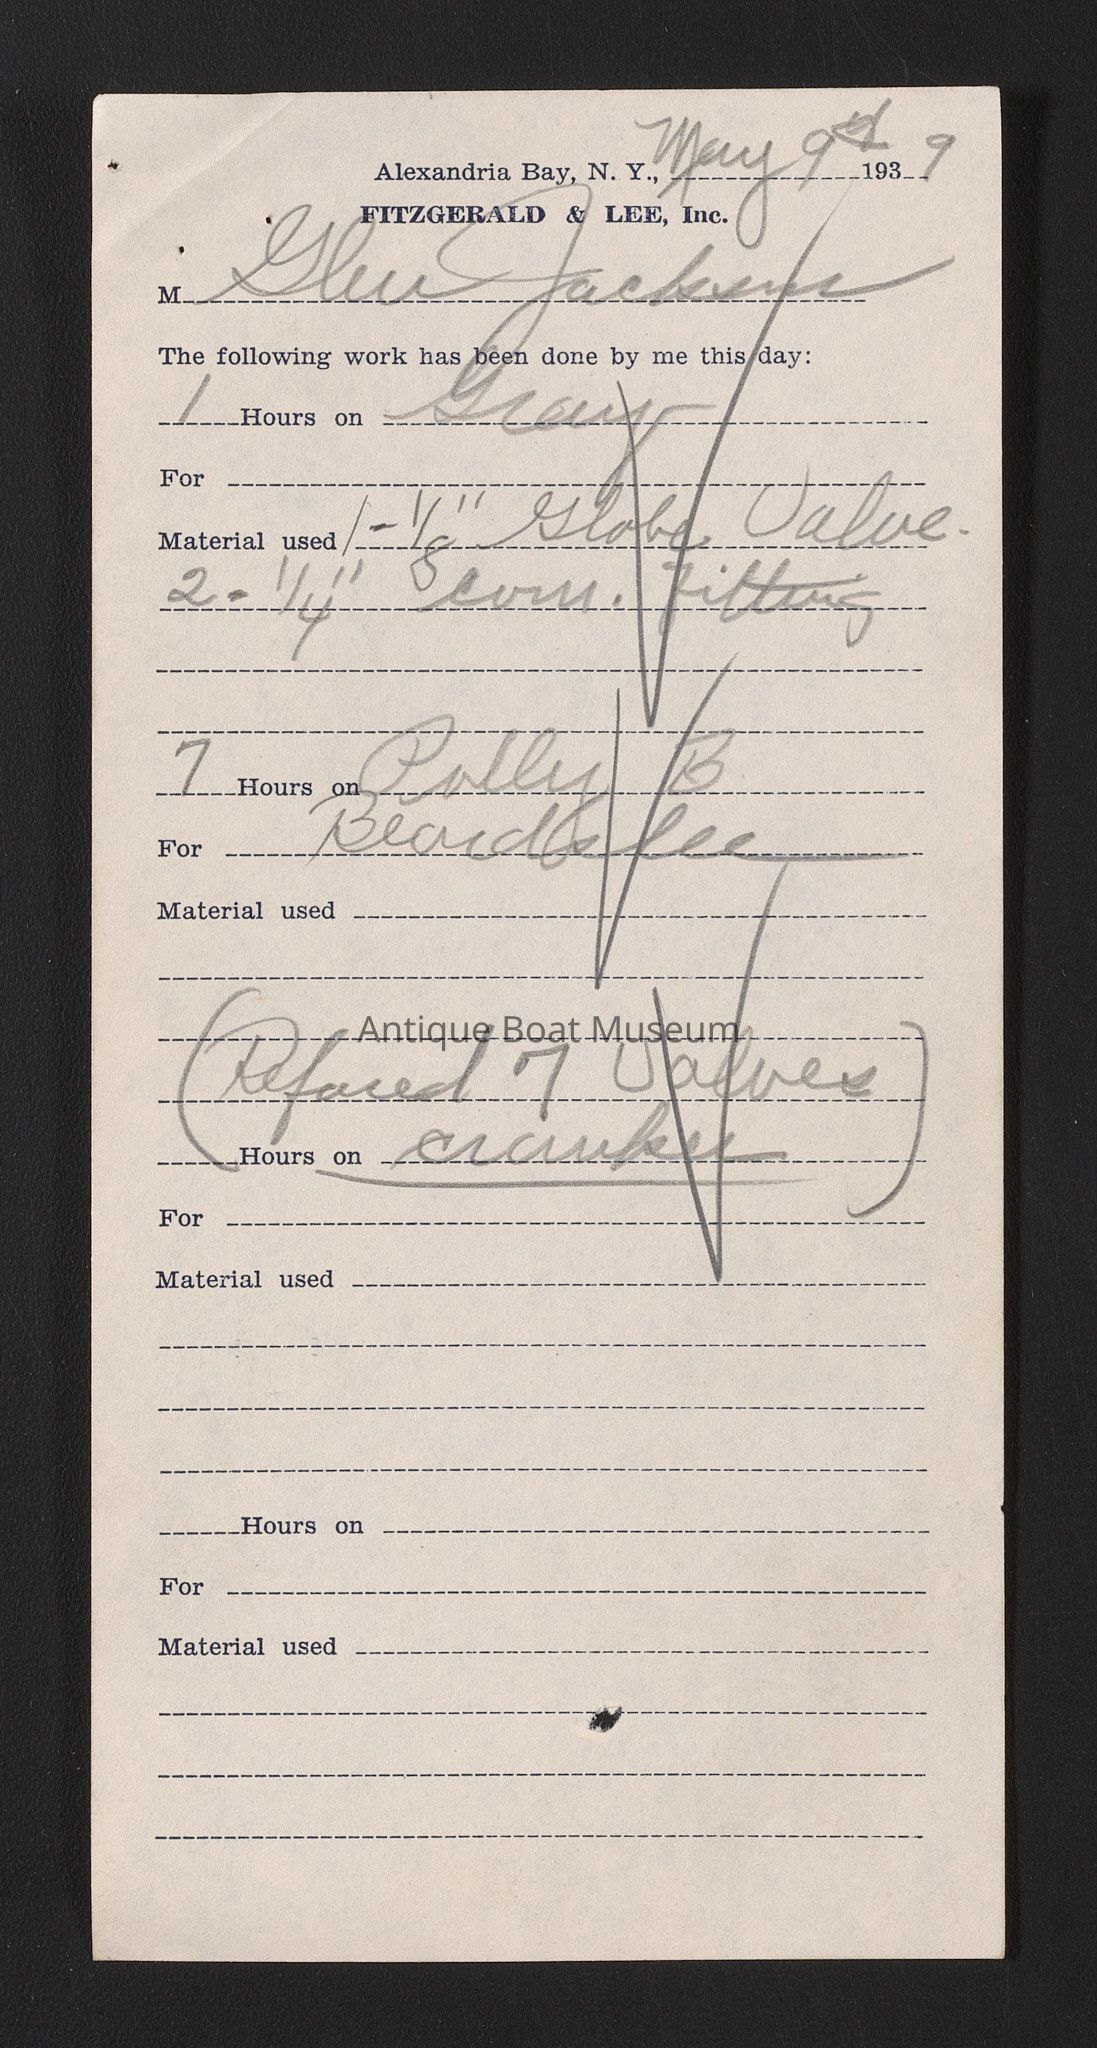 Alexandria Bay, N. Y., May 9th 1939
FITZGERALD & LEE, Inc.
M Glen Jackson
The following work has been done by me this day:
1 Hours on Gray
For
Material used 1-1/8" Globe Valve.
2-1/4" com. Fitting
7 Hours on Polly B
For Beardslee
Material used
Antique Boat Museum
(Refaced 7 Valves
Hours on )
For
Material used
Hours on
For
Material used